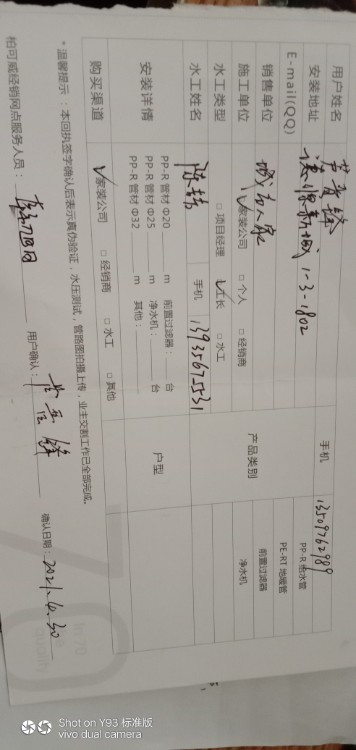 用户姓名 手机 13509762989
安装地址 1-3-1802
E-mail(QQ)
销售单位 城市人家 产品类别 PP-R 给水管
PE-RT 地暖管
前置过滤器
净水机
施工单位 ✓家装公司 □ 个人 □ 经销商
水工类型 □ 项目经理 ✓工长 □ 水工
水工姓名 手机 13935675531
安装详情 PP-R 管材 Φ20 m 前置过滤器: 台
PP-R 管材 Φ25 m 净水机: 台
PP-R 管材 Φ32 m 其他:
户型
购买渠道 ✓家装公司 □ 经销商 □ 水工 □ 其他
*温馨提示:本回执签字确认后表示真伪验证,水压测试,管路图拍摄上传,业主交割工作已全部完成。
柏可威经销网点服务人员: 用户确认: 确认日期: 2021.4.30
Shot on Y93 标准版
vivo dual camera